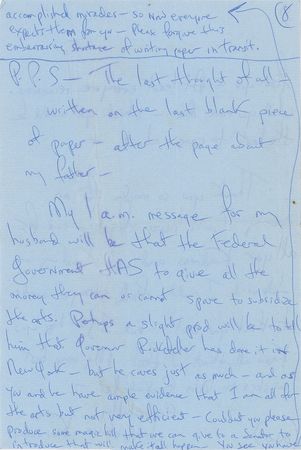 accomplished miracles – so now everyone
expects them from you – Please forgive this
embarrassing shortage of writing paper in transit.
8
P.P.S – The last thought of all –
written on the last blank piece
of paper – after the page about
my father –
My 1 a.m. message for my
husband will be that the Federal
Government HAS to give all the
money they can or cannot spare to subsidize
the arts. Perhaps a slight prod will be to tell
him that Governor Rockefeller has done it in
New York – but he cares just as much – and as
You and he have ample evidence that I am all for
the arts but not very efficient – Could you please
produce some magic bill that we can give to a Senator to
introduce that will make it all happen. You see you have